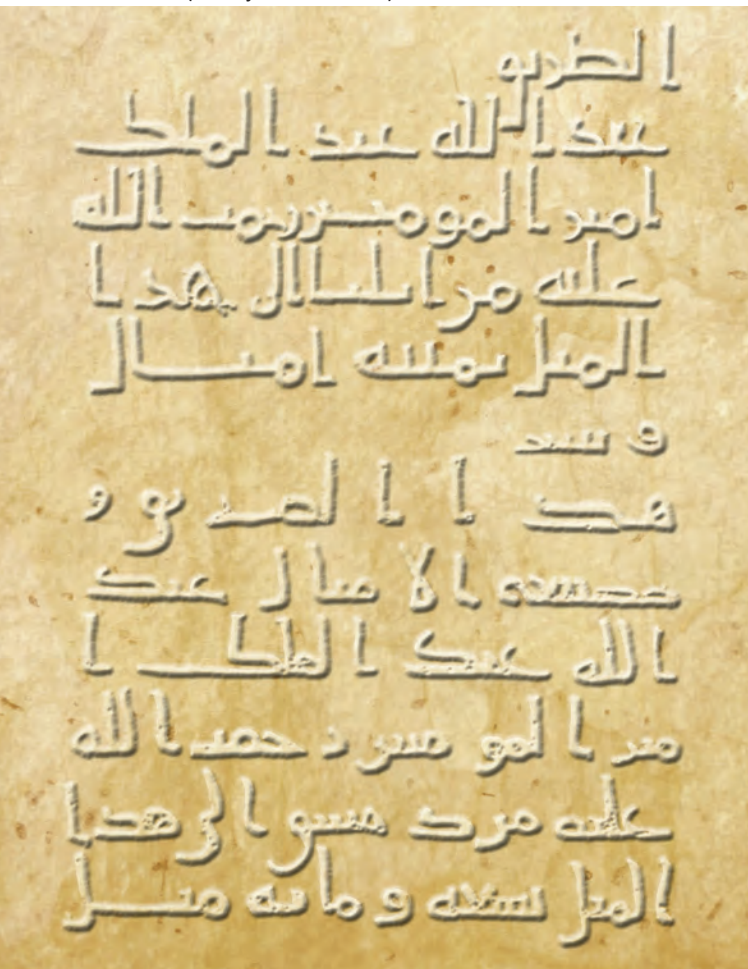 الطريق
عبد الله عبد الملك
امير المومنين رحمت الله
عليه من ايليا الى هذا
الميل ثمنيه اميال
هذا الطريق و
صنعه الاميال عبد
الله عبد الملك ا
مير المومنين رحمت الله
عليه من دمشق الى هذا
الميل تسعه ومائه ميل